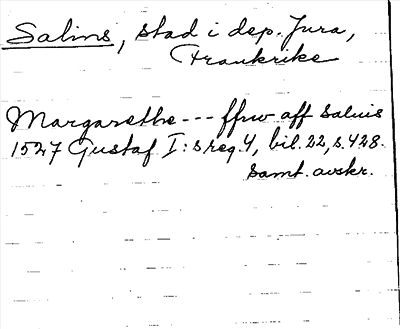 Salins, stad i dep. Jura,
Frankrike
Margarethe --- ffrw aff Salins
1527 Gustaf I:s reg. 4, bil. 22, s. 428.
samt. avskr.